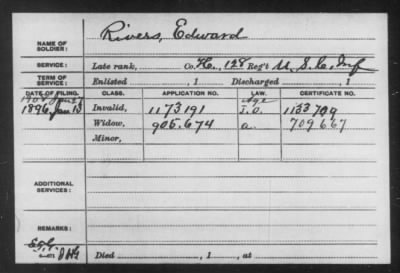 NAME OF SOLDIER: Rivers, Edward
SERVICE: Late rank, Co. H, 128 Reg't U. S. C. Inf
TERM OF SERVICE: Enlisted , 1 Discharged , 1
DATE OF FILING. CLASS. APPLICATION NO. LAW. CERTIFICATE NO.
1896 Jan 13 Invalid, 1173191 Age 1133799
Widow, 905.674 a. 709667
Minor,
ADDITIONAL SERVICES:
REMARKS:
Died , 1 , at